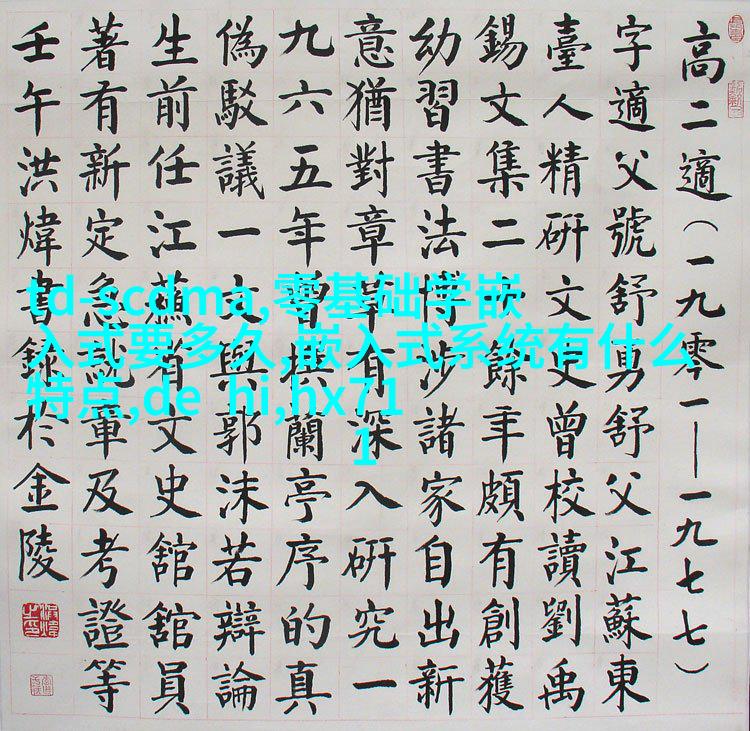 高二適（一九零一——一九七七）
字適父號舒勇舒父江蘇東
臺人精研文史曾校讀劉禹
錫文集二十餘年頗有創獲
幼習書法博涉諸家自出新
意猶對章草有深入研究一
九六五年曾撰蘭亭序的真
偽駁議一文與郭沫若辯論
生前任江蘇省文史館館員
著有新定急就章及考證等
壬午洪煒書錄於金陵
td-scdma,零基础学嵌
入式要多久,嵌入式系统有什么
特点,de hi,hx71
1